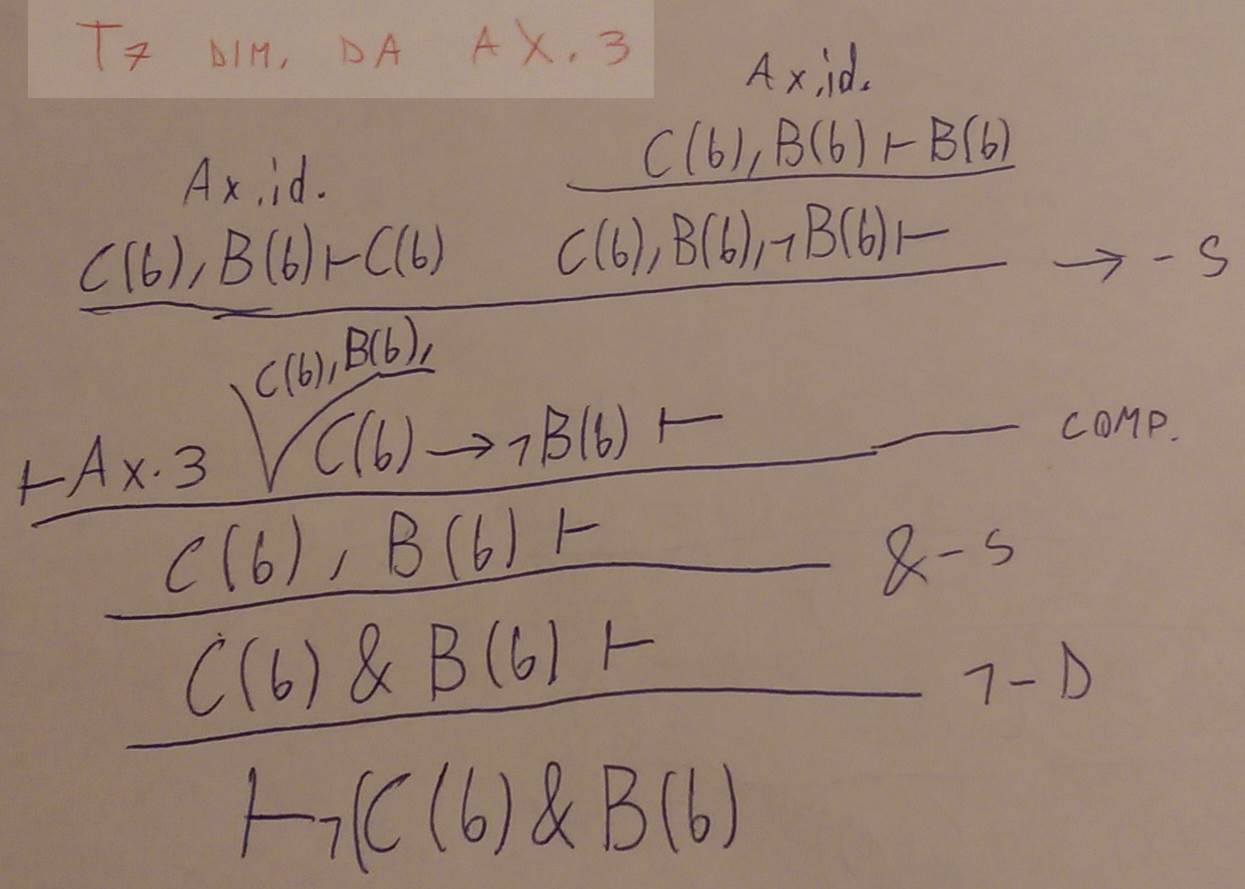 T7 DIM. DA AX.3
Ax.id.
C(b), B(b) ⊢ B(b)
Ax.id.
C(b), B(b) ⊢ C(b)    C(b), B(b), ¬B(b) ⊢    → - S
C(b), B(b),
⊢ Ax.3    C(b) → ¬B(b) ⊢    COMP.
C(b), B(b) ⊢    & - S
C(b) & B(b) ⊢    ¬ - D
⊢ ¬(C(b) & B(b)